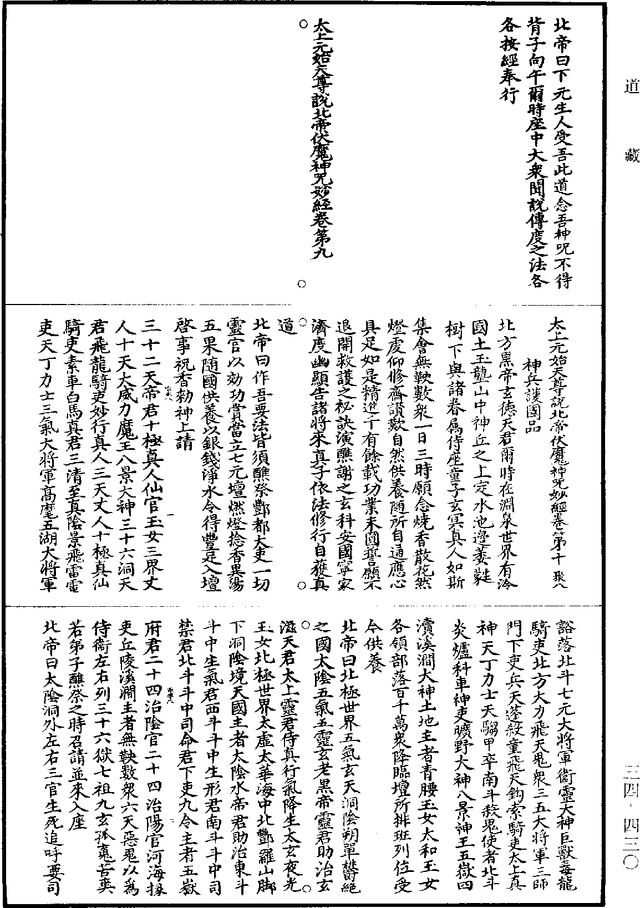 道藏
北帝曰下元生人受吾此道念吾神呪不得
背子向午爾時座中大衆聞說傳度之法各
各按經奉行
太上元始天尊說北帝伏魔神呪妙經卷第九
太上元始天尊說北帝伏魔神呪妙經卷第十
神兵護國品
北方黑帝玄德天君爾時在淵泉世界有泠
國土玉壟山中神丘之上定水池邊萎䔧
樹下與諸眷屬侍座童子玄冥真人如斯
集會無鞅數衆一日三時願念燒香散花然
燈虔仰修齋讚歎自然供養隨所自通應心
具足如是精進丁有餘載功業未圓誓願不
退開救護之秘訣演醮謝之玄科安國寧家
濟度幽顯告諸將來真子依法修行自獲真
道
北帝曰作吾要法皆須醮祭酆都大吏一切
靈官以効功賞當立七元壇燃燈捻香異湯
五果隨國供養以銀錢淨水令得豐足入壇
啓事祝香勑神上請
三十二天帝君十極真人仙官玉女三界丈
人十天大威力魔王八景大神三十六洞天
君飛龍騎吏妙行真人三天丈人十極真仙
騎吏素車白馬真君三清至真陰景飛雷電
吏天丁力士三氣大將軍高麾五湖大將軍
豁落北斗七元大將軍衛靈大神巨獸毒龍
騎吏北方大力飛天鬼衆三五大將軍三師
門下吏兵天蓬殺童飛天鈎索騎吏太上真
神天丁力士天騶甲卒南斗救鬼使者北斗
炎爐科車神吏曠野大神八景神王五嶽四
瀆溪澗大神土地主者青腰玉女太和玉女
各領部落百千萬衆降臨壇所排班列位受
今供養
北帝曰北極世界五氣玄天洞陰朔單鬱絕
之國太陰五氣五靈玄老黑帝靈君助治玄
滋天君太上靈君侍真行氣降生太玄夜光
玉女北極世界太虛太華海中北酆羅山脚
下洞陰境天國主者太陰水帝君助治東斗
斗中生氣君西斗斗中生形君南斗斗中司
禁君北斗斗中司命君下吏九令主者五嶽
府君二十四治陰官二十四治陽官河海掾
吏丘陵溪澗主者無鞅數衆六天惡鬼以爲
侍衛左右列三十六獄七祖九玄孤寃苦爽
若弟子醮祭之時召請並來入座
北帝曰太陰洞外左右三官生死追呼要司
三四·四三〇